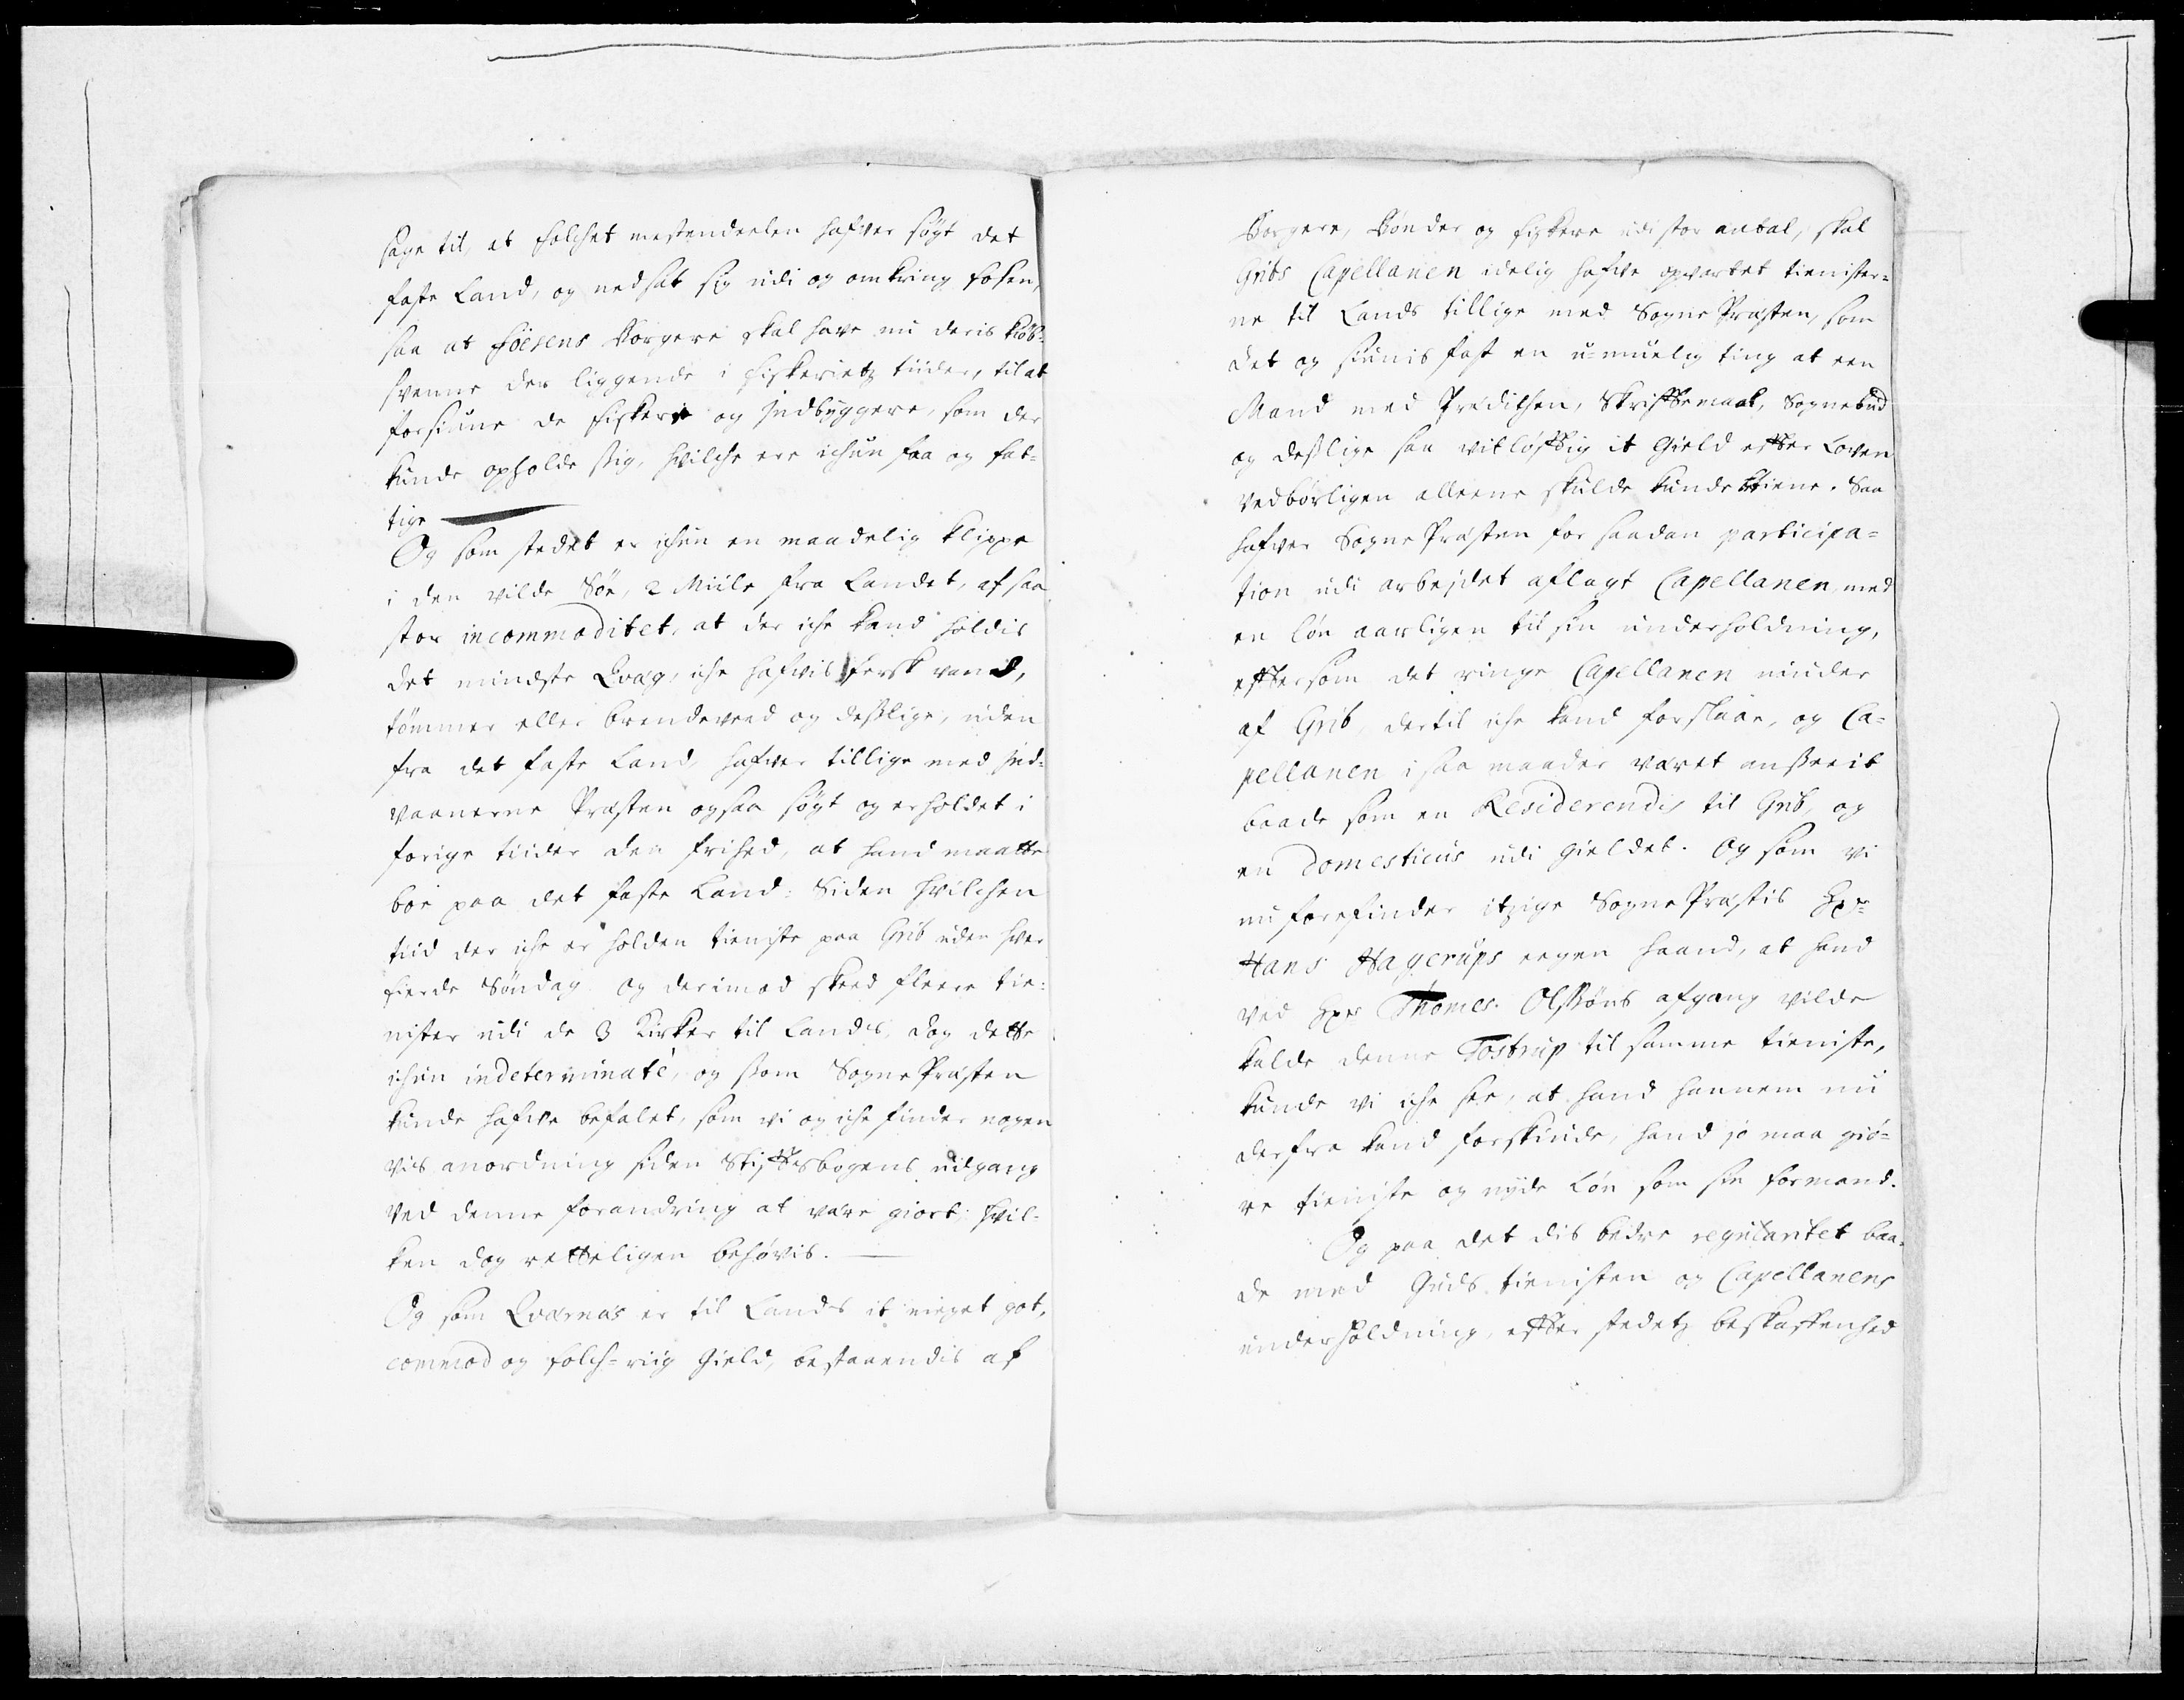 sage til, at folchet mestendeelen hafver søgt det
faste Land, og nedsat sig udi og omkring Fosen,
saa at Foesens Borgere skal have nu deris kiøb-
svenne der liggende i fiskerietz tiider, til at
forsiune de fiskere og Jndbyggere, som der
kunde opholde ssig, hvilche ere ichun faa og fat-
tige
Og som stedet er ichun en maadelig klippe
i den vilde Søe, 2 Miile fra Landet, af saa
stor incommoditet, at der iche kand holdis
det mindste Qvæg, iche hafvis fersk vand,
tømmer eller brendeveed og desslige, uden
fra det faste Land, hafver tillige med Jnd-
vaanerne Præsten ogsaa søgt og erholdet i
forige tiider den frihed, at hand maatte
boe paa det faste Land: Siden hvilchen
tiid der iche er holden tieniste paa Grib uden hver
fierde Søndag og derimod skeed fleere tie-
nister udi de 3 Kirker til Lands, dog dette
ichun indeterminatè, og ssom Sogne Præsten
kunde hafve befalet, som vi og iche finder nogen
vis anordning siden Stiftsbogens udgang
ved denne forandring at være giort; hvil-
ken dog retteligen behøvis.
Og som Qværnæs er til Lands it meget got,
commod og folch-riig Gield, bestaaendis af
Borgere, Bønder og fiskere udi stor antal, skal
Gribs Capellanen idelig hafve opvartet tienister-
ne til Lands tillige med Sogne Præsten, som
det og siunis fast en u-muelig ting at een
Mand med Prædichen, Skriftemaal, Sognebud
og desslige saa vitløftig it Gield efter Loven
vedbørligen alleene skulde kunde betiene. Saa
hafver Sogne Præsten for saadan participa-
tion udi arbejdet aflagt Capellanen, med
en løn aarligen til sin underholdning,
eftersom det ringe Capellanen niuder
af Grib, dertil iche kand forslaae, og Ca-
pellanen i saa maader været ansseeit
baade som en Residerendis til Grib og
en domesticus udi gieldet. Og som vi
nu forefinder itzige Sogne Præstis Hr.
Hans Hagerups eegen haand, at hand
ved Hr. Thomes Olssøns afgang vilde
kalde denne Tostrup til samme tieniste,
kunde vi iche see, at hand hannem nu
derfra kand forskiude, hand jo maa giö-
re tieniste og nyde Løn som sin formand.
Og paa det dis bedre regularitet baa-
de med Guds tienisten og Capellanens
underholdning, efter stedetz beskaffenhed